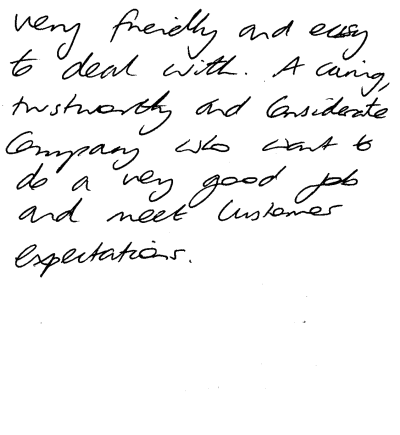 very friendly and easy
to deal with. A caring,
trustworthy and Considerate
Company who want to
do a very good job
and meet Customer
expectations.